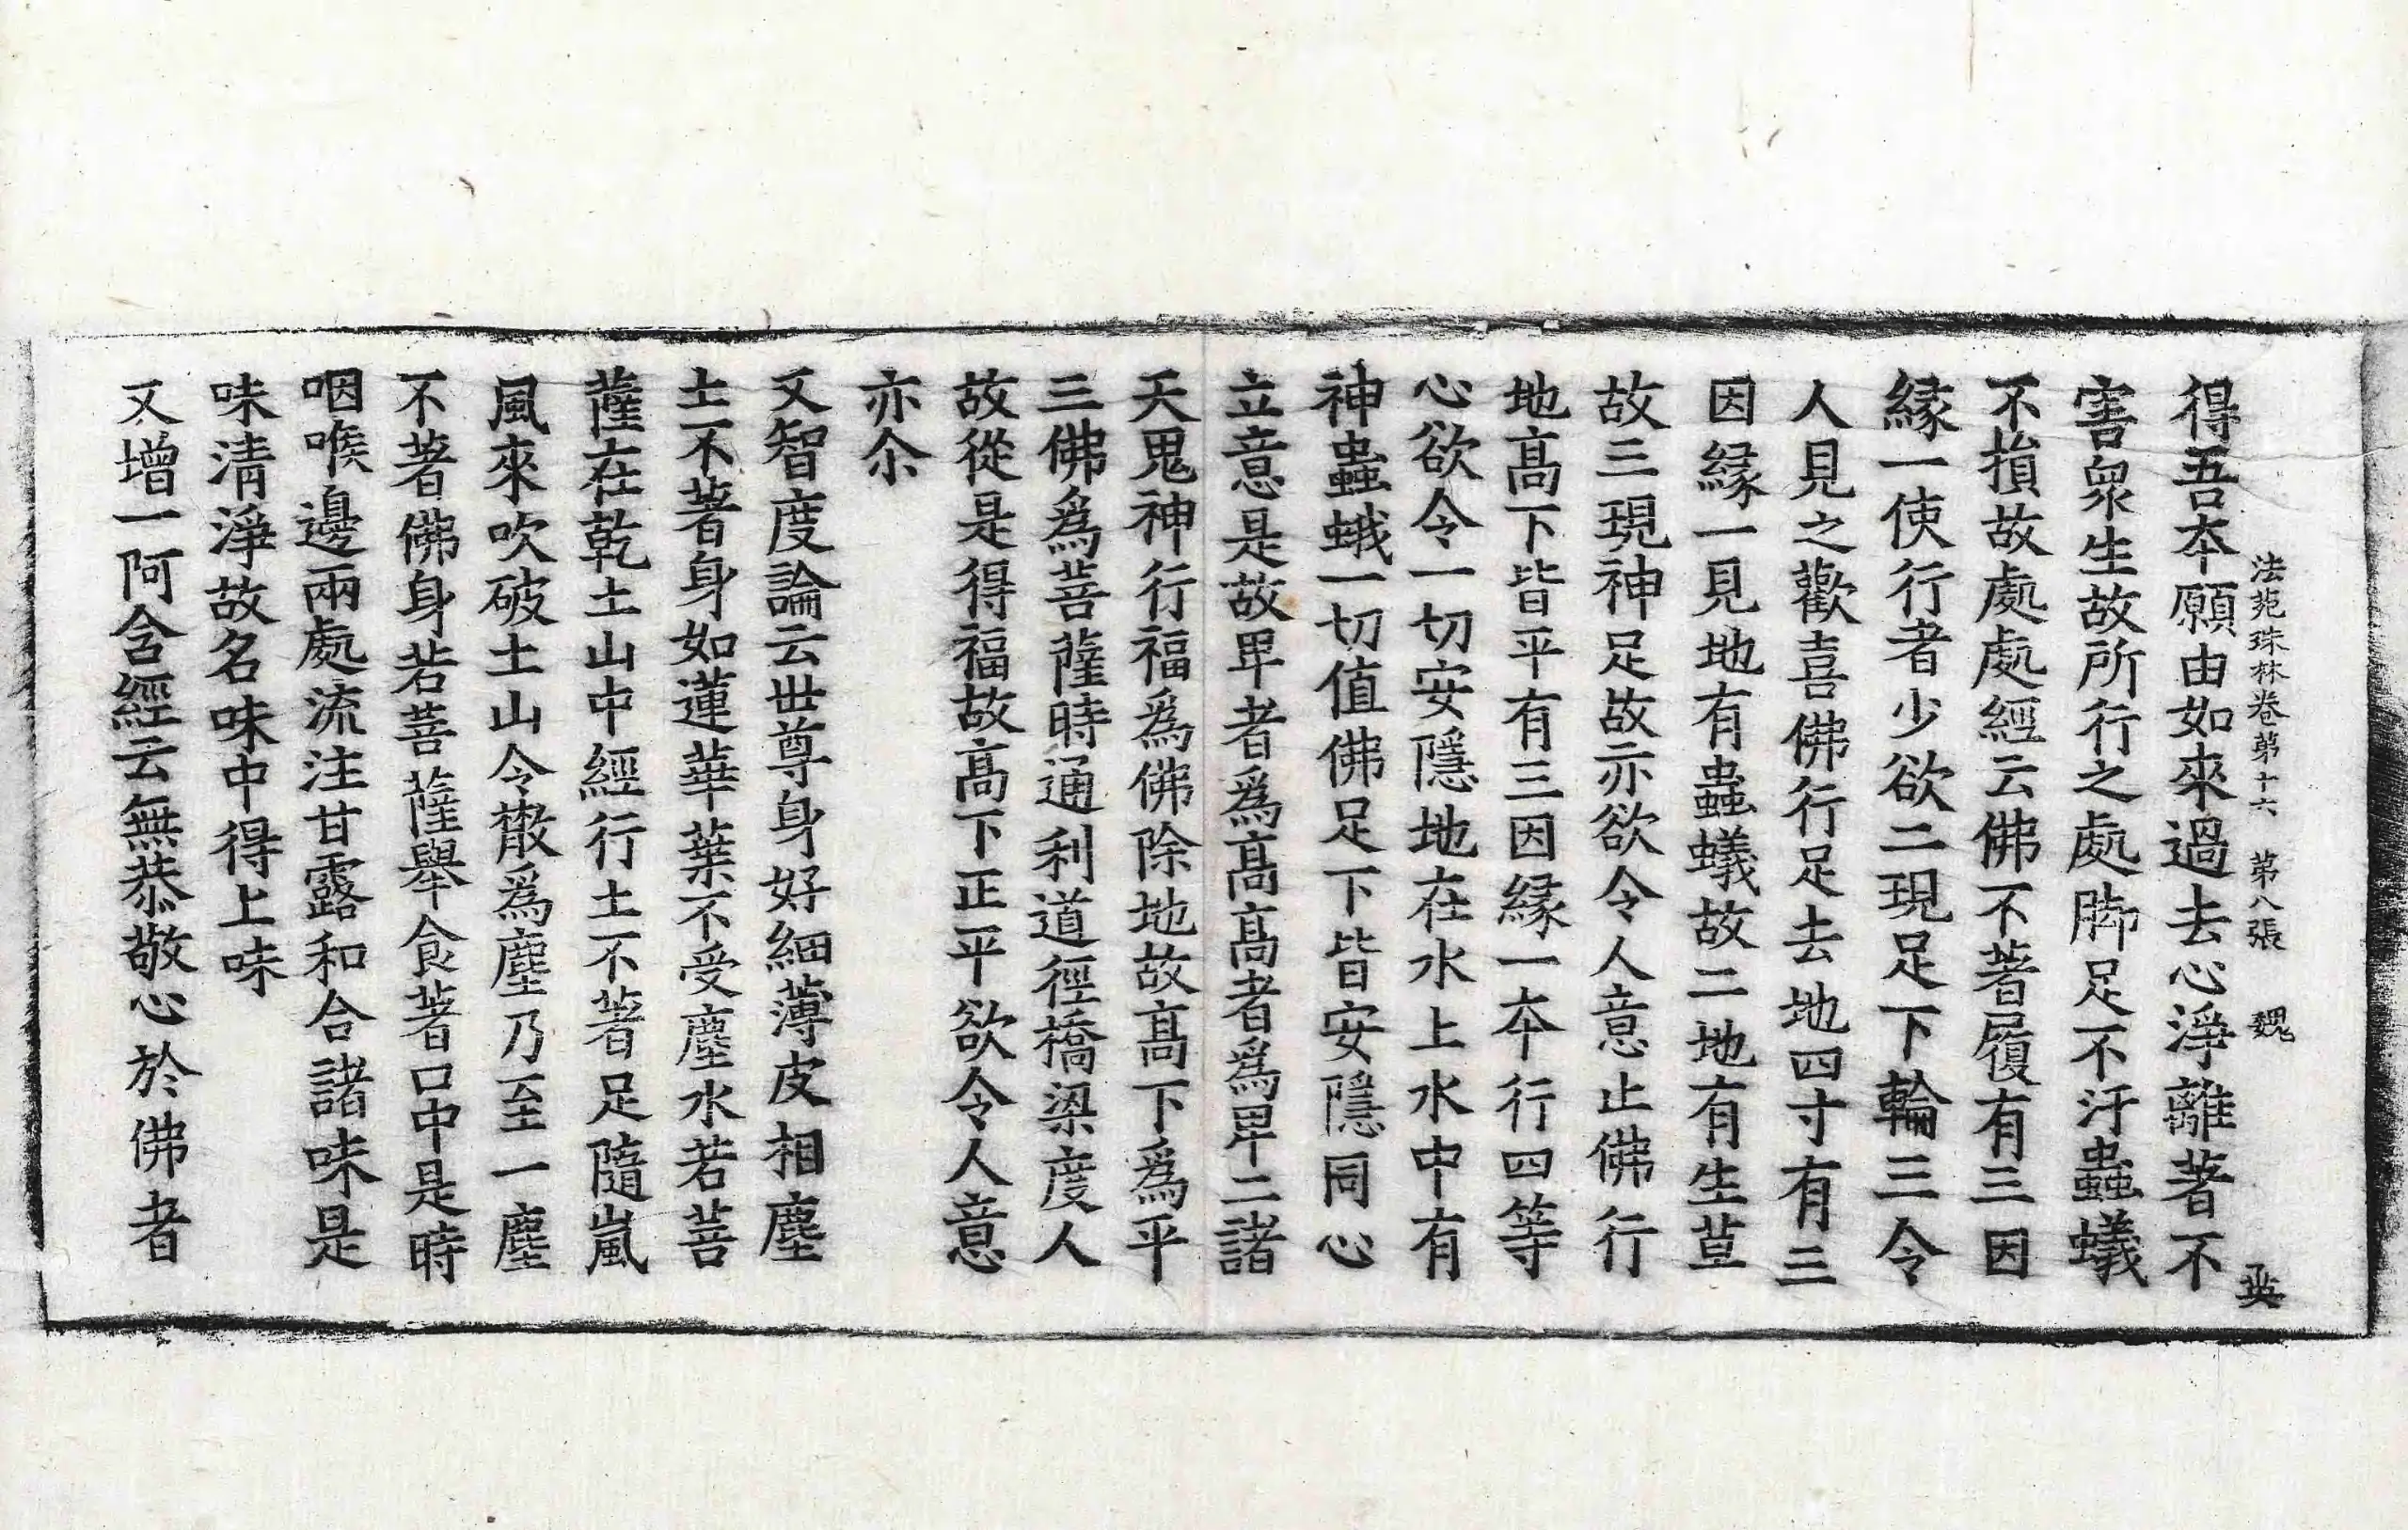 法苑珠林卷第十六 第八張 魏 英
得吾本願由如來過去心淨離著不
害衆生故所行之處脚足不汙蟲蟻
不損故處處經云佛不著履有三因
緣一使行者少欲二現足下輪三令
人見之歡喜佛行足去地四寸有三
因緣一見地有蟲蟻故二地有生草
故三現神足故亦欲令人意止佛行
地髙下皆平有三因緣一本行四等
心欲令一切安隱地在水上水中有
神蟲蛾一切值佛足下皆安隱同心
立意是故卑者爲髙髙者爲卑二諸
天鬼神行福爲佛除地故髙下爲平
三佛爲菩薩時通利道徑橋梁度人
故從是得福故髙下正平欲令人意
亦尒
又智度論云世尊身好細薄皮相塵
土不著身如蓮華葉不受塵水若菩
薩在乾土山中經行土不著足隨嵐
風來吹破土山令散爲塵乃至一塵
不著佛身若菩薩舉食著口中是時
咽喉邊兩處流注甘露和合諸味是
味清淨故名味中得上味
又增一阿含經云無恭敬心於佛者